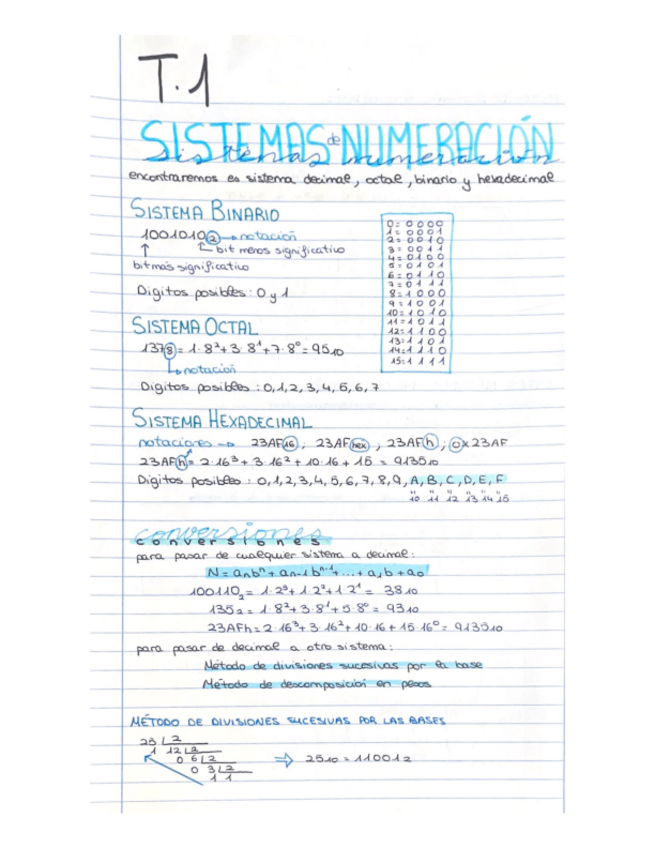 T.1
SISTEMAS de NUMERACIÓN
sistemas numeración
encontraremos es sistema decimal, octal, binario y hexadecimal
SISTEMA BINARIO
1001010② → notación
bit menos significativo
bit más significativo
Digitos posibles: 0 y 1
0=0000
1=0001
2=0010
3=0011
4=0100
5=0101
6=0110
7=0111
8=1000
9=1001
10=1010
11=1011
12=1100
13=1101
14=1110
15=1111
SISTEMA OCTAL
137⑧ = 1·8²+3·8¹+7·8⁰=95₁₀
notación
Digitos posibles: 0,1,2,3,4,5,6,7
SISTEMA HEXADECIMAL
notaciones → 23AF⑯, 23AF(hex), 23AFⓗ, ⓪x23AF
23AFⓗ = 2·16³+3·16²+10·16+15=9135₁₀
Digitos posibles: 0,1,2,3,4,5,6,7,8,9,A,B,C,D,E,F
10 11 12 13 14 15
conversiones
conversiones
para pasar de cualquier sistema a decimal:
N=aₙbⁿ+aₙ₋₁bⁿ⁻¹+...+a₁b+a₀
100110₂=1·2⁵+1·2²+1·2¹=38₁₀
135₂=1·8²+3·8¹+5·8⁰=93₁₀
23AFh=2·16³+3·16²+10·16+15·16⁰=9135₁₀
para pasar de decimal a otro sistema:
Método de divisiones sucesivas por la base
Método de descomposición en pesos
MÉTODO DE DIVISIONES SUCESIVAS POR LAS BASES
25 2
1 12 2
0 6 2
0 3 2
1 1
⇒ 25₁₀=11001₂